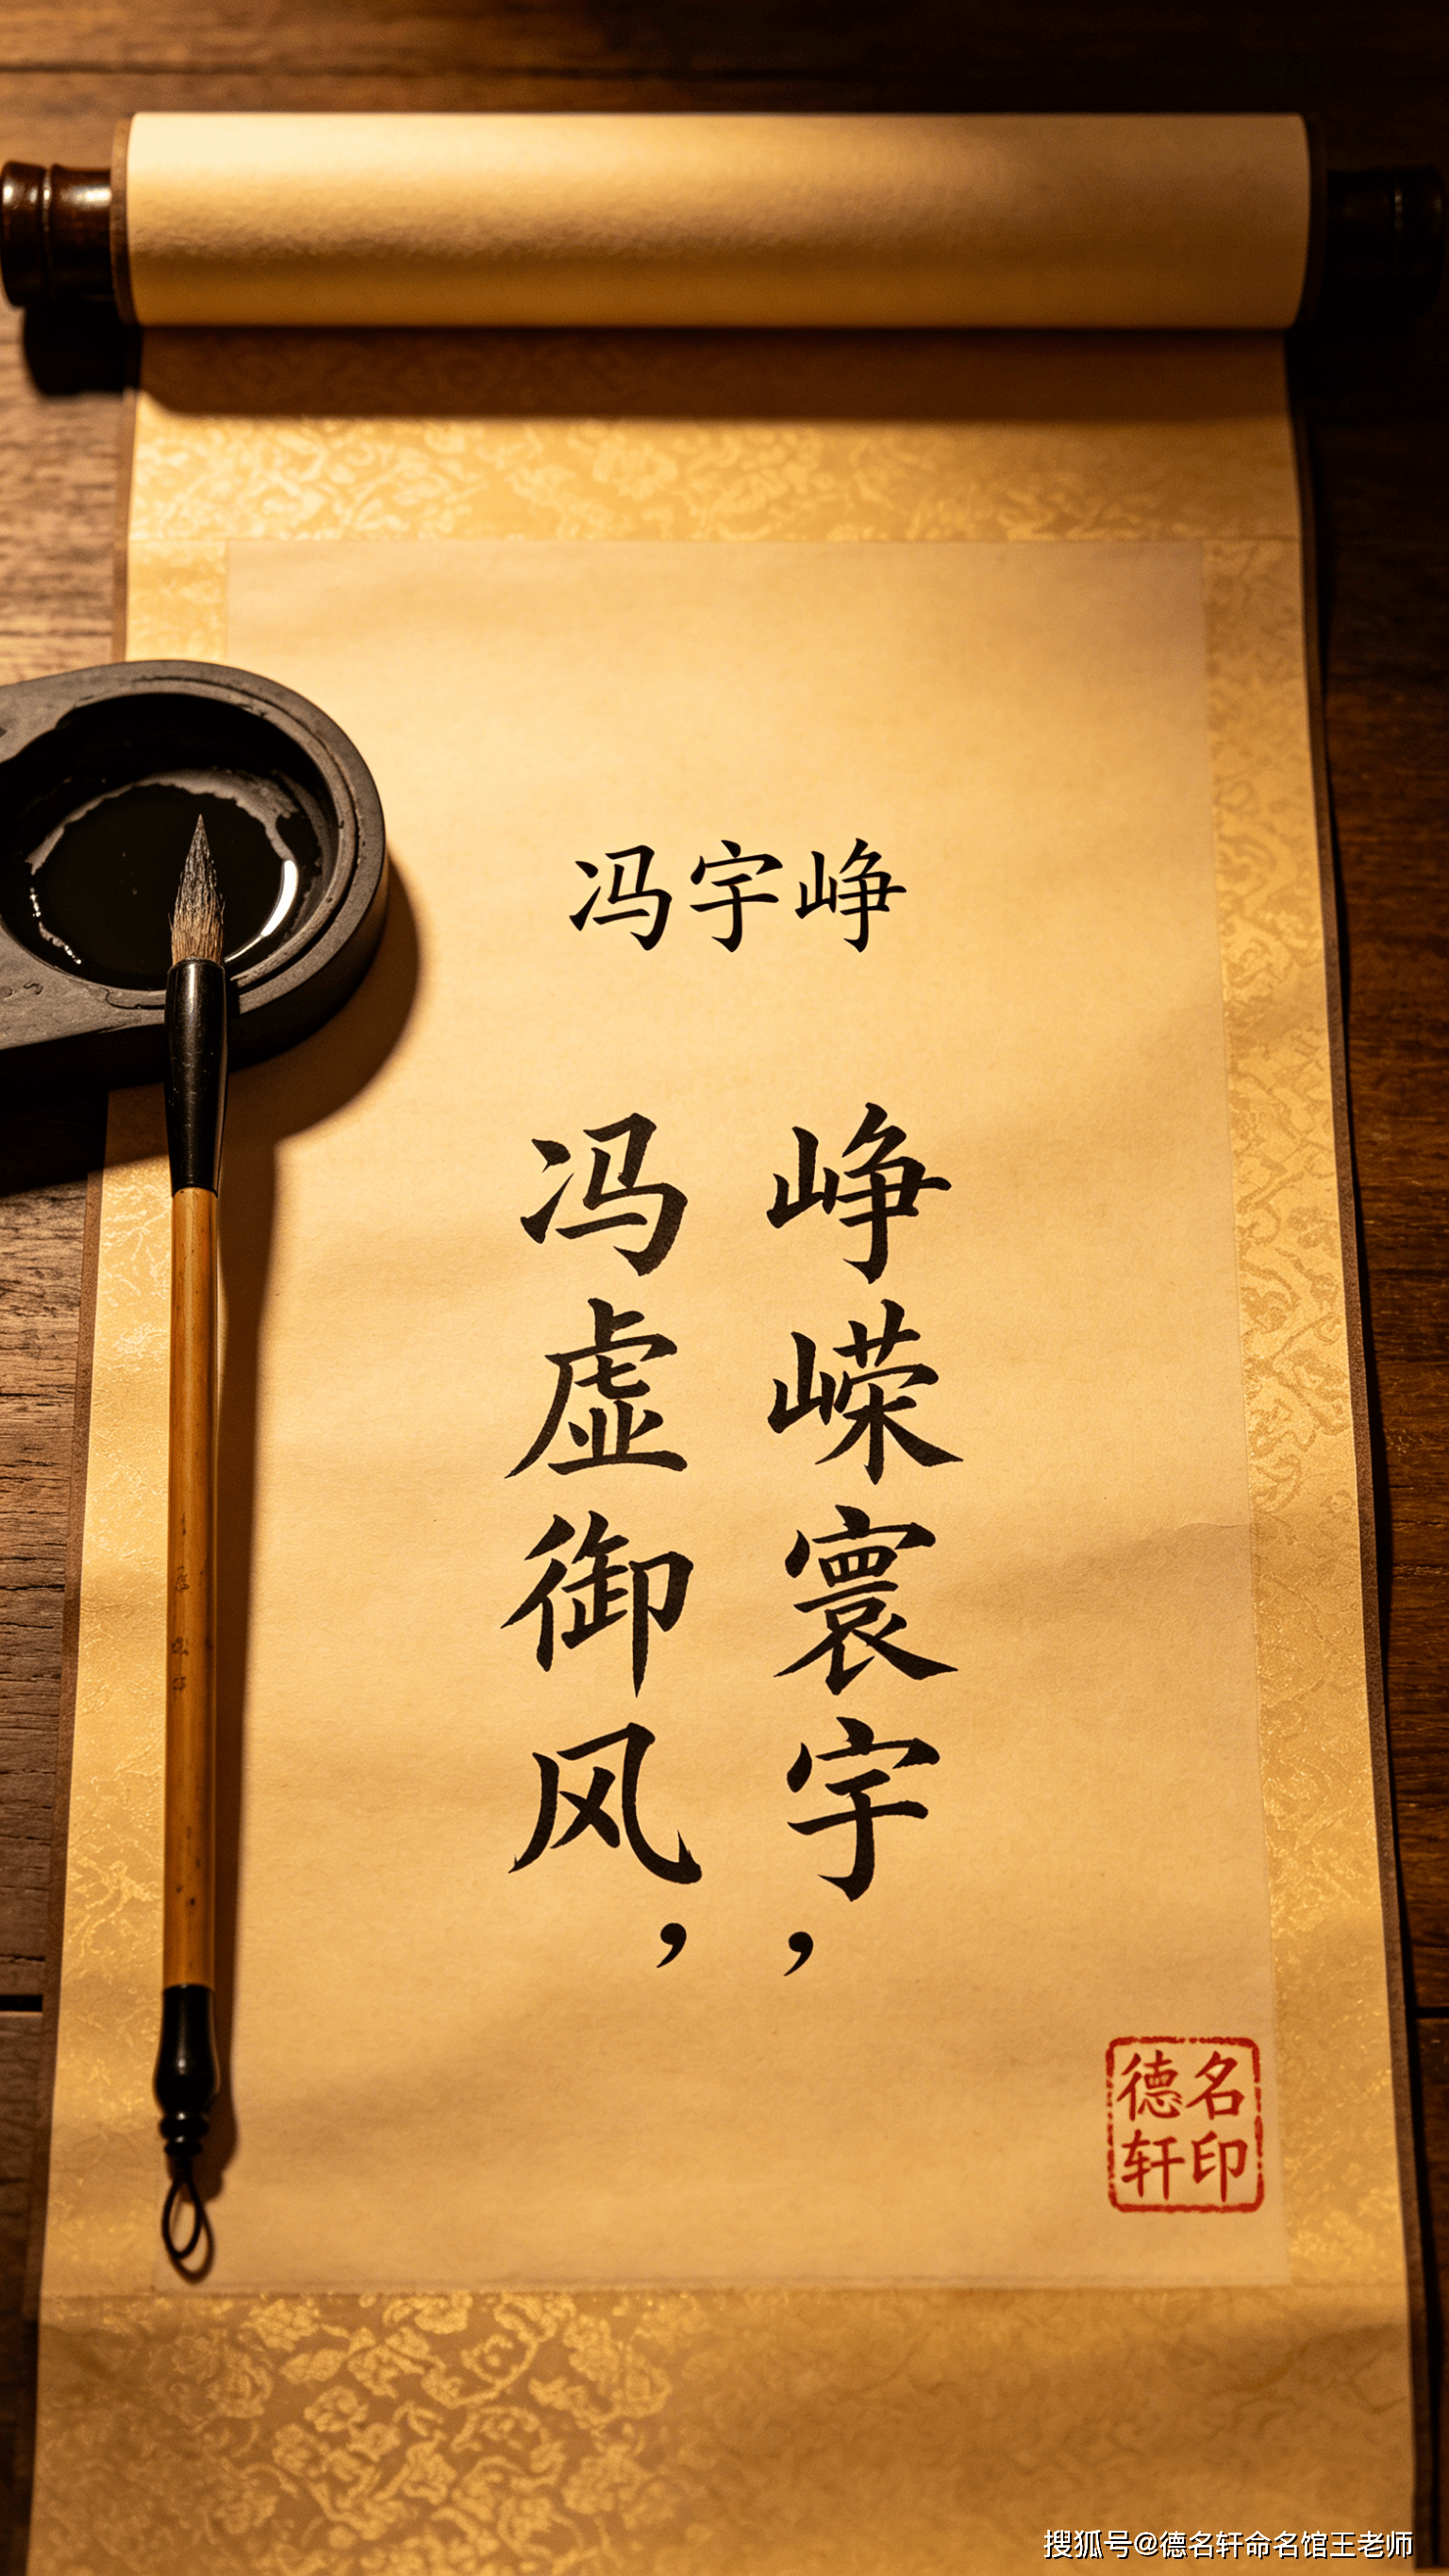 冯宇峥
冯虚御风，
峥嵘寰宇，
德名
轩印
搜狐号@德名轩命名馆王老师